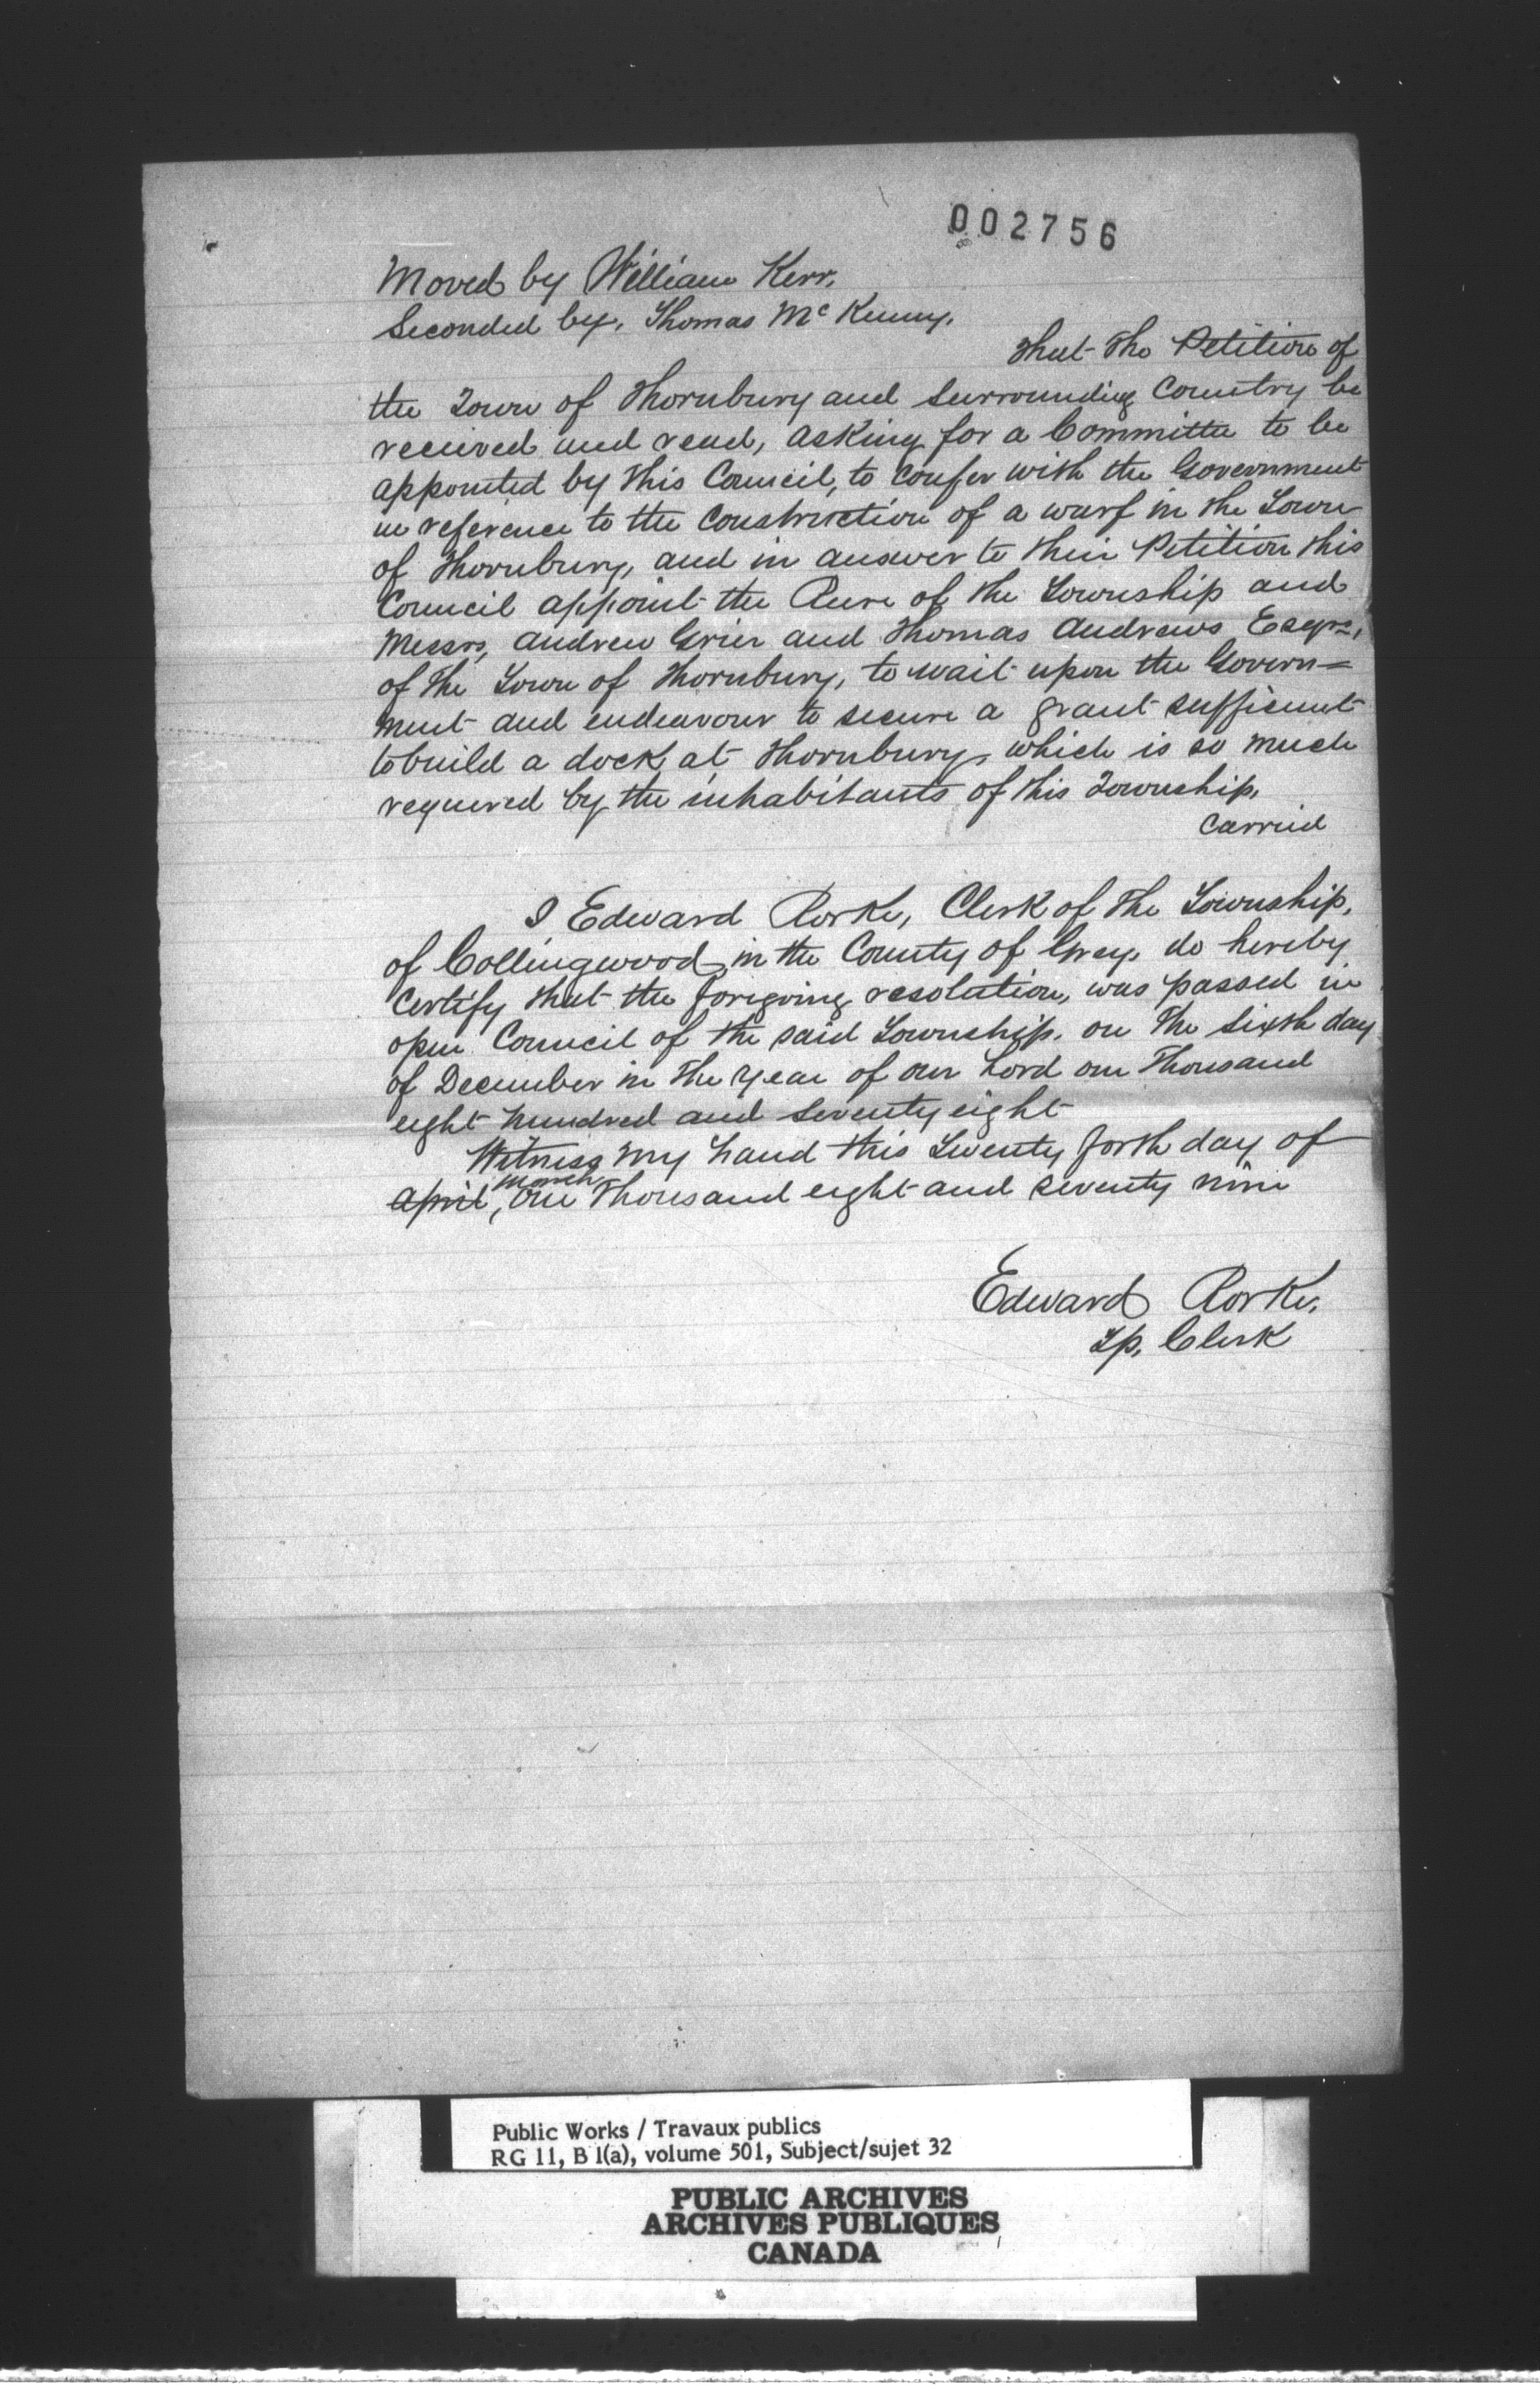 002756
Moved by William Kerr.
Seconded by, Thomas Mc Kenny.
That the Petition of
the Town of Thornbury and Surrounding Country be
received and read, asking for a Committee to be
appointed by this Council, to confer with the Government
in reference to the Construction of a warf in the Town
of Thornbury, and in answer to their Petition this
Council appoint the Reeve of the Township and
Messrs, Andrew Grier and Thomas Andrews Esqrs,
of the Town of Thornbury, to wait upon the Govern=
ment and endeavour to secure a grant sufficient
to build a dock at Thornbury, which is so much
required by the inhabitants of this Township,
Carried
I Edward Rorke, Clerk of the Township,
of Collingwood, in the County of Grey, do hereby
Certify that the foregoing resolution, was passed in
open Council of the said Township. on the sixth day
of December in the year of our Lord one Thousand
eight hundred and seventy eight
Witness my hand this Twenty forth day of
march
April, One Thousand eight and seventy nine
Edward Rorke,
Tp. Clerk
Public Works / Travaux publics
RG 11, B 1(a), volume 501, Subject/sujet 32
PUBLIC ARCHIVES
ARCHIVES PUBLIQUES
CANADA